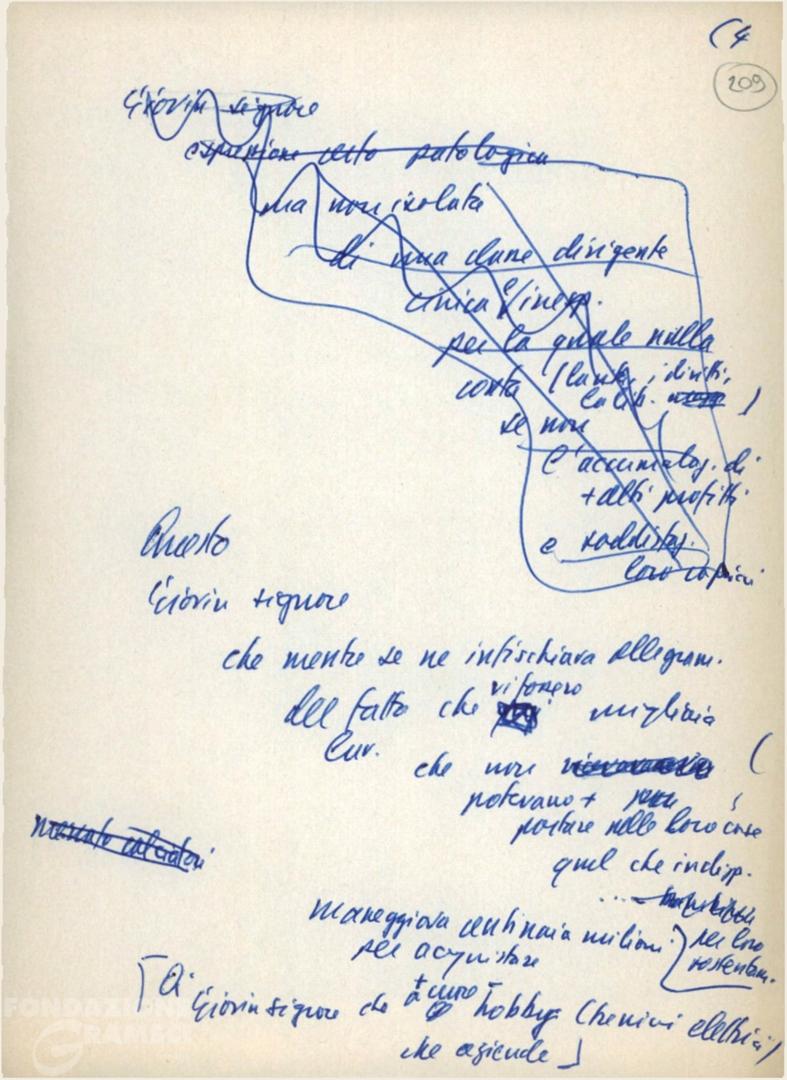 (4
209
Giovin signore
espressione certo patologica
ma non isolata
di una classe dirigente
cinica e inesp.
per la quale nulla
conta (
i diritti,
se non
l'accumulaz. di
+ alti profitti
e soddisfaz.
loro capricci
Questo
Giovin signore
che mentre se ne infischiava allegram.
del fatto che vi fossero migliaia
lav.
che non (
potevano +
portare nelle loro case
quel che indisp.
mercato calciatori
...
maneggiava centinaia milioni
per loro
sostentam.
per acquistare
Giovin signore che + cura hobby (trenini elettrici)
che aziende ]
FONDAZIONE
GRAMSCI